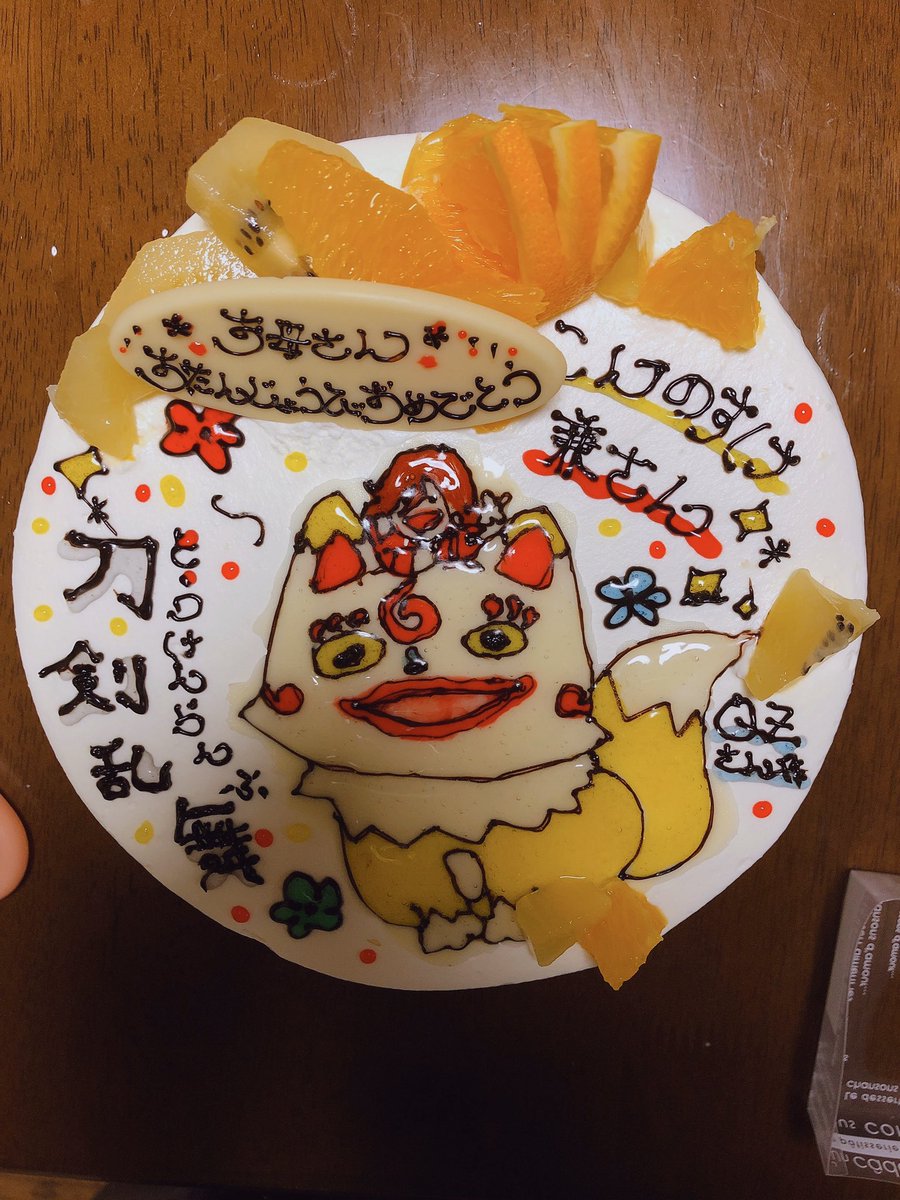 お母さん
おたんじょうびおめでとう
こんのすけ
兼さん
〜
刀剣乱舞
とうけんらんぶ
QZ
さん作
chansons
Le dessert